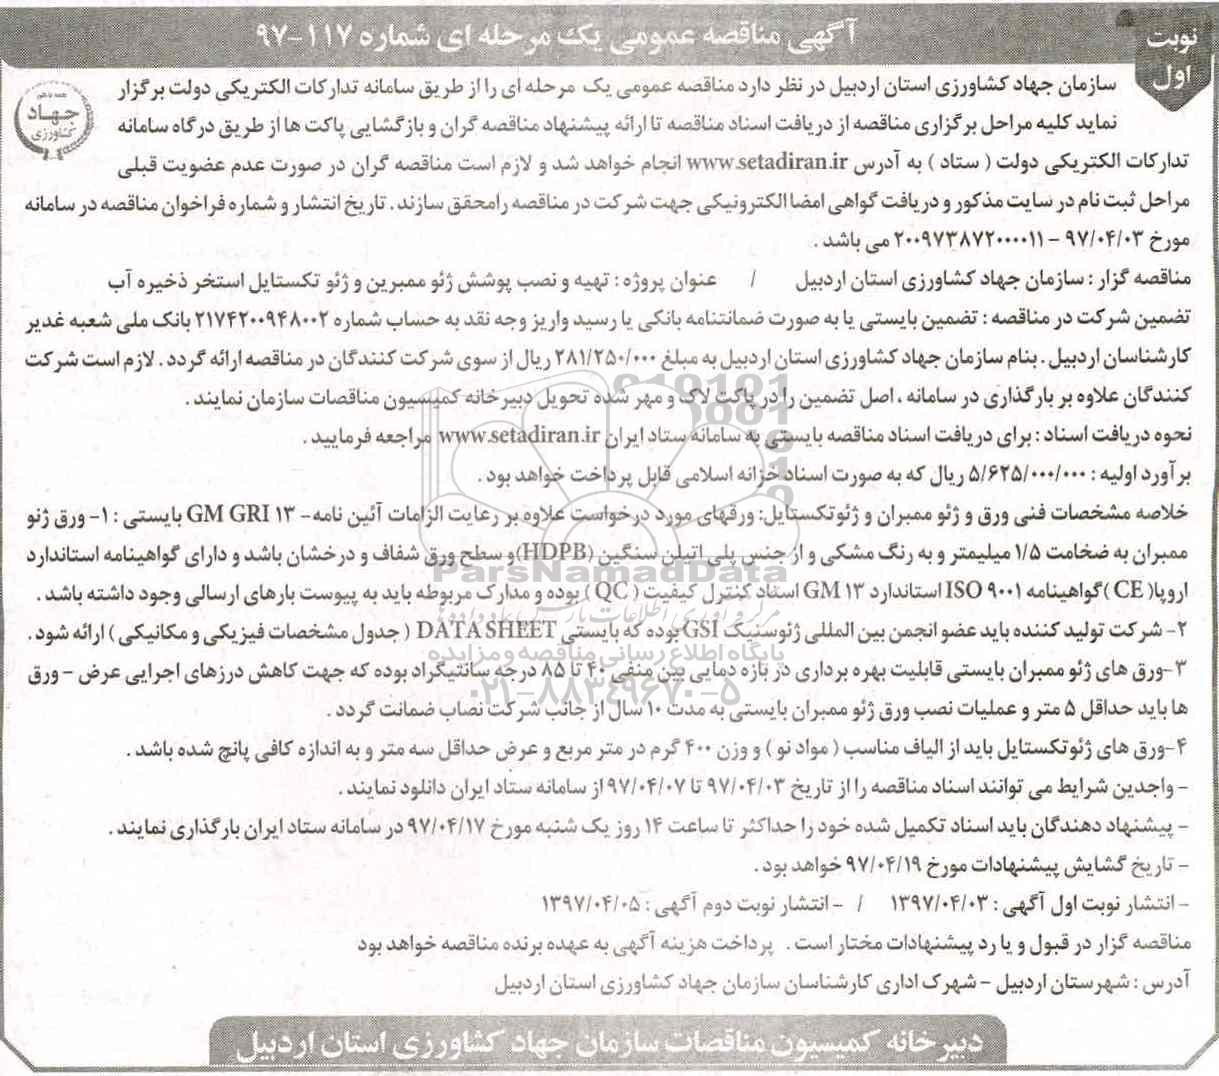 نوبت اول
آگهی مناقصه عمومی یک مرحله ای شماره ۱۱۷-۹۷
جهاد کشاورزی
سازمان جهاد کشاورزی استان اردبیل در نظر دارد مناقصه عمومی یک مرحله ای را از طریق سامانه تدارکات الکتریکی دولت برگزار
نماید کلیه مراحل برگزاری مناقصه از دریافت اسناد مناقصه تا ارائه پیشنهاد مناقصه گران و بازگشایی پاکت ها از طریق درگاه سامانه
تدارکات الکتریکی دولت ( ستاد ) به آدرس www.setadiran.ir انجام خواهد شد و لازم است مناقصه گران در صورت عدم عضویت قبلی
مراحل ثبت نام در سایت مذکور و دریافت گواهی امضا الکترونیکی جهت شرکت در مناقصه را محقق سازند . تاریخ انتشار و شماره فراخوان مناقصه در سامانه
مورخ ۹۷/۰۴/۰۳ - ۲۰۰۹۷۳۸۷۲۰۰۰۰۱۱ می باشد .
مناقصه گزار : سازمان جهاد کشاورزی استان اردبیل / عنوان پروژه : تهیه و نصب پوشش ژئو ممبرین و ژئو تکستایل استخر ذخیره آب
تضمین شرکت در مناقصه : تضمین بایستی یا به صورت ضمانتنامه بانکی یا رسید واریز وجه نقد به حساب شماره ۲۱۷۴۲۰۰۹۴۸۰۰۲ بانک ملی شعبه غدیر
کارشناسان اردبیل . بنام سازمان جهاد کشاورزی استان اردبیل به مبلغ ۲۸۱/۲۵۰/۰۰۰ ریال از سوی شرکت کنندگان در مناقصه ارائه گردد . لازم است شرکت
کنندگان علاوه بر بارگذاری در سامانه ، اصل تضمین را در پاکت لاک و مهر شده تحویل دبیرخانه کمیسیون مناقصات سازمان نمایند .
نحوه دریافت اسناد : برای دریافت اسناد مناقصه بایستی به سامانه ستاد ایران www.setadiran.ir مراجعه فرمایید .
برآورد اولیه : ۵/۶۲۵/۰۰۰/۰۰۰ ریال که به صورت اسناد خزانه اسلامی قابل پرداخت خواهد بود .
خلاصه مشخصات فنی ورق و ژئو ممبران و ژئوتکستایل: ورقهای مورد درخواست علاوه بر رعایت الزامات آئین نامه- GM GRI ۱۳ بایستی : ۱- ورق ژئو
ممبران به ضخامت ۱/۵ میلیمتر و به رنگ مشکی و از جنس پلی اتیلن سنگین (HDPB)و سطح ورق شفاف و درخشان باشد و دارای گواهینامه استاندارد
اروپا( CE )گواهینامه ISO ۹۰۰۱ استاندارد GM ۱۳ اسناد کنترل کیفیت ( QC ) بوده و مدارک مربوطه باید به پیوست بارهای ارسالی وجود داشته باشد .
۲- شرکت تولید کننده باید عضو انجمن بین المللی ژئوسنتیک GSI بوده که بایستی DATA SHEET ( جدول مشخصات فیزیکی و مکانیکی ) ارائه شود .
۳-ورق های ژئو ممبران بایستی قابلیت بهره برداری در بازه دمایی بین منفی ۴۰ تا ۸۵ درجه سانتیگراد بوده که جهت کاهش درزهای اجرایی عرض - ورق
ها باید حداقل ۵ متر و عملیات نصب ورق ژئو ممبران بایستی به مدت ۱۰ سال از جانب شرکت نصاب ضمانت گردد .
۴-ورق های ژئوتکستایل باید از الیاف مناسب ( مواد نو ) و وزن ۴۰۰ گرم در متر مربع و عرض حداقل سه متر و به اندازه کافی پانچ شده باشد .
- واجدین شرایط می توانند اسناد مناقصه را از تاریخ ۹۷/۰۴/۰۳ تا ۹۷/۰۴/۰۷ از سامانه ستاد ایران دانلود نمایند .
- پیشنهاد دهندگان باید اسناد تکمیل شده خود را حداکثر تا ساعت ۱۴ روز یک شنبه مورخ ۹۷/۰۴/۱۷ در سامانه ستاد ایران بارگذاری نمایند .
- تاریخ گشایش پیشنهادات مورخ ۹۷/۰۴/۱۹ خواهد بود .
- انتشار نوبت اول آگهی : ۱۳۹۷/۰۴/۰۳ / - انتشار نوبت دوم آگهی : ۱۳۹۷/۰۴/۰۵
مناقصه گزار در قبول و یا رد پیشنهادات مختار است . پرداخت هزینه آگهی به عهده برنده مناقصه خواهد بود
آدرس : شهرستان اردبیل - شهرک اداری کارشناسان سازمان جهاد کشاورزی استان اردبیل
دبیرخانه کمیسیون مناقصات سازمان جهاد کشاورزی استان اردبیل
ParsNamadData
پایگاه اطلاع رسانی مناقصه و مزایده
۰۲۱-۸۸۳۴۹۶۷۰-۵